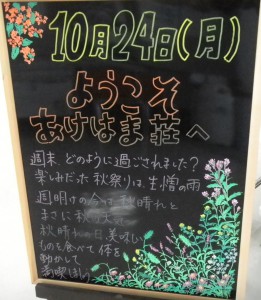 10月24日(月)
ようこそ
あけはま荘へ
週末、どのように過ごされました?
楽しみだった秋祭りは、生憎の雨
週明けの今は秋晴れと
まさに秋の
秋晴れの 美味しい
ものを食べて 体を
動かして